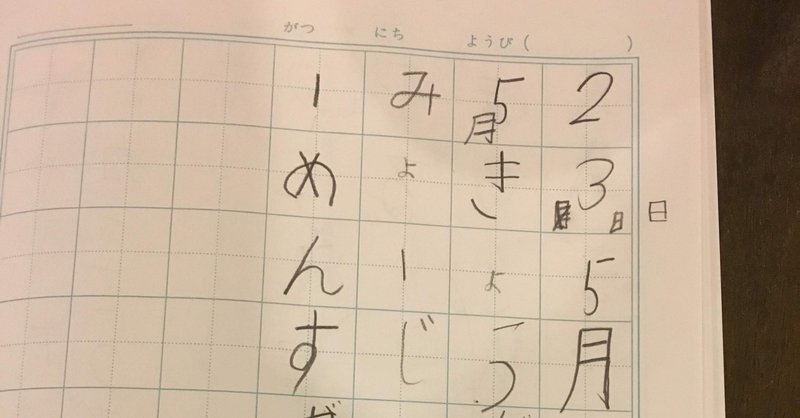 がつ にち ようび( )
日
23日5月
5月きょう
みょーじ
ーめんす